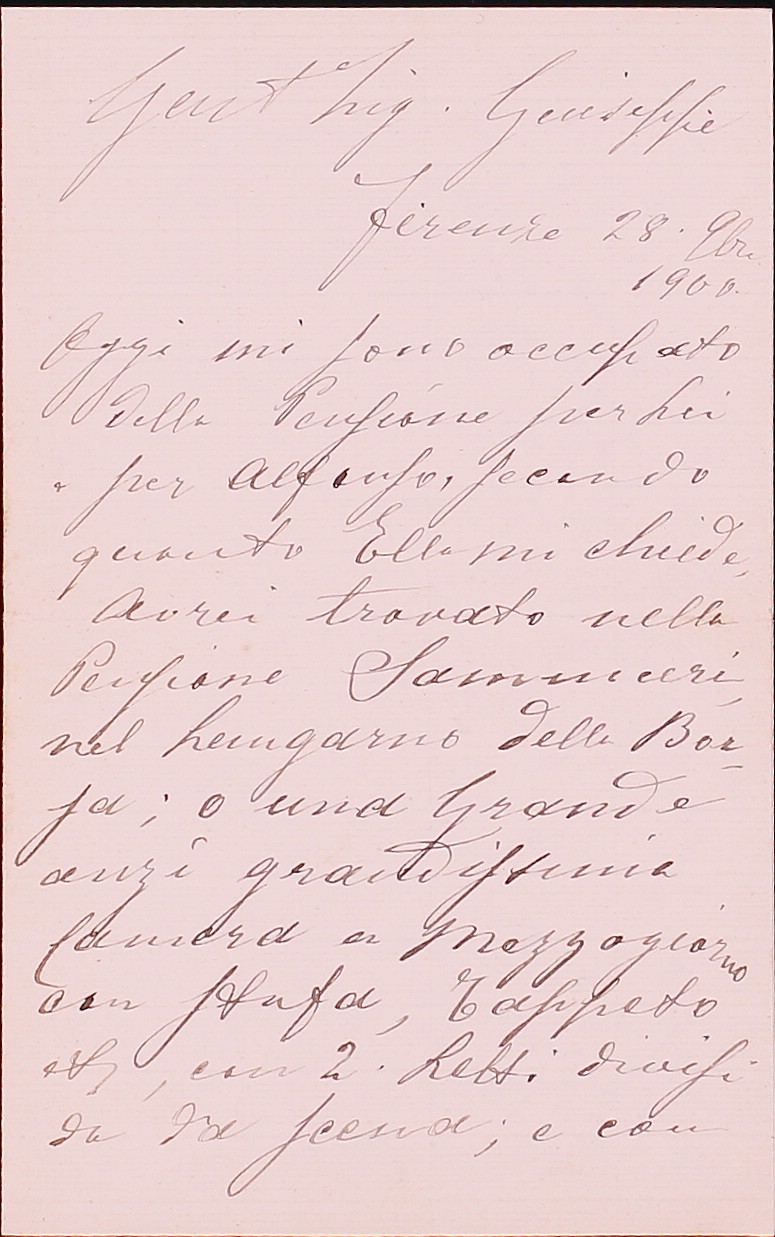 Gent Sig. Giuseppe
Firenze 28. 9bre
1900.
Oggi mi sono occupato
della Pensione per Lei
e per Alfonso, secondo
quanto Ella mi chiede,
Avrei trovato nella
Pensione
nel Lungarno della Bor=
sa; o una Grande
anzi grandissima
Camera a Mezzogiorno
con stufa, Tappeto
etc, con 2. Letti divisi
da scena; e con